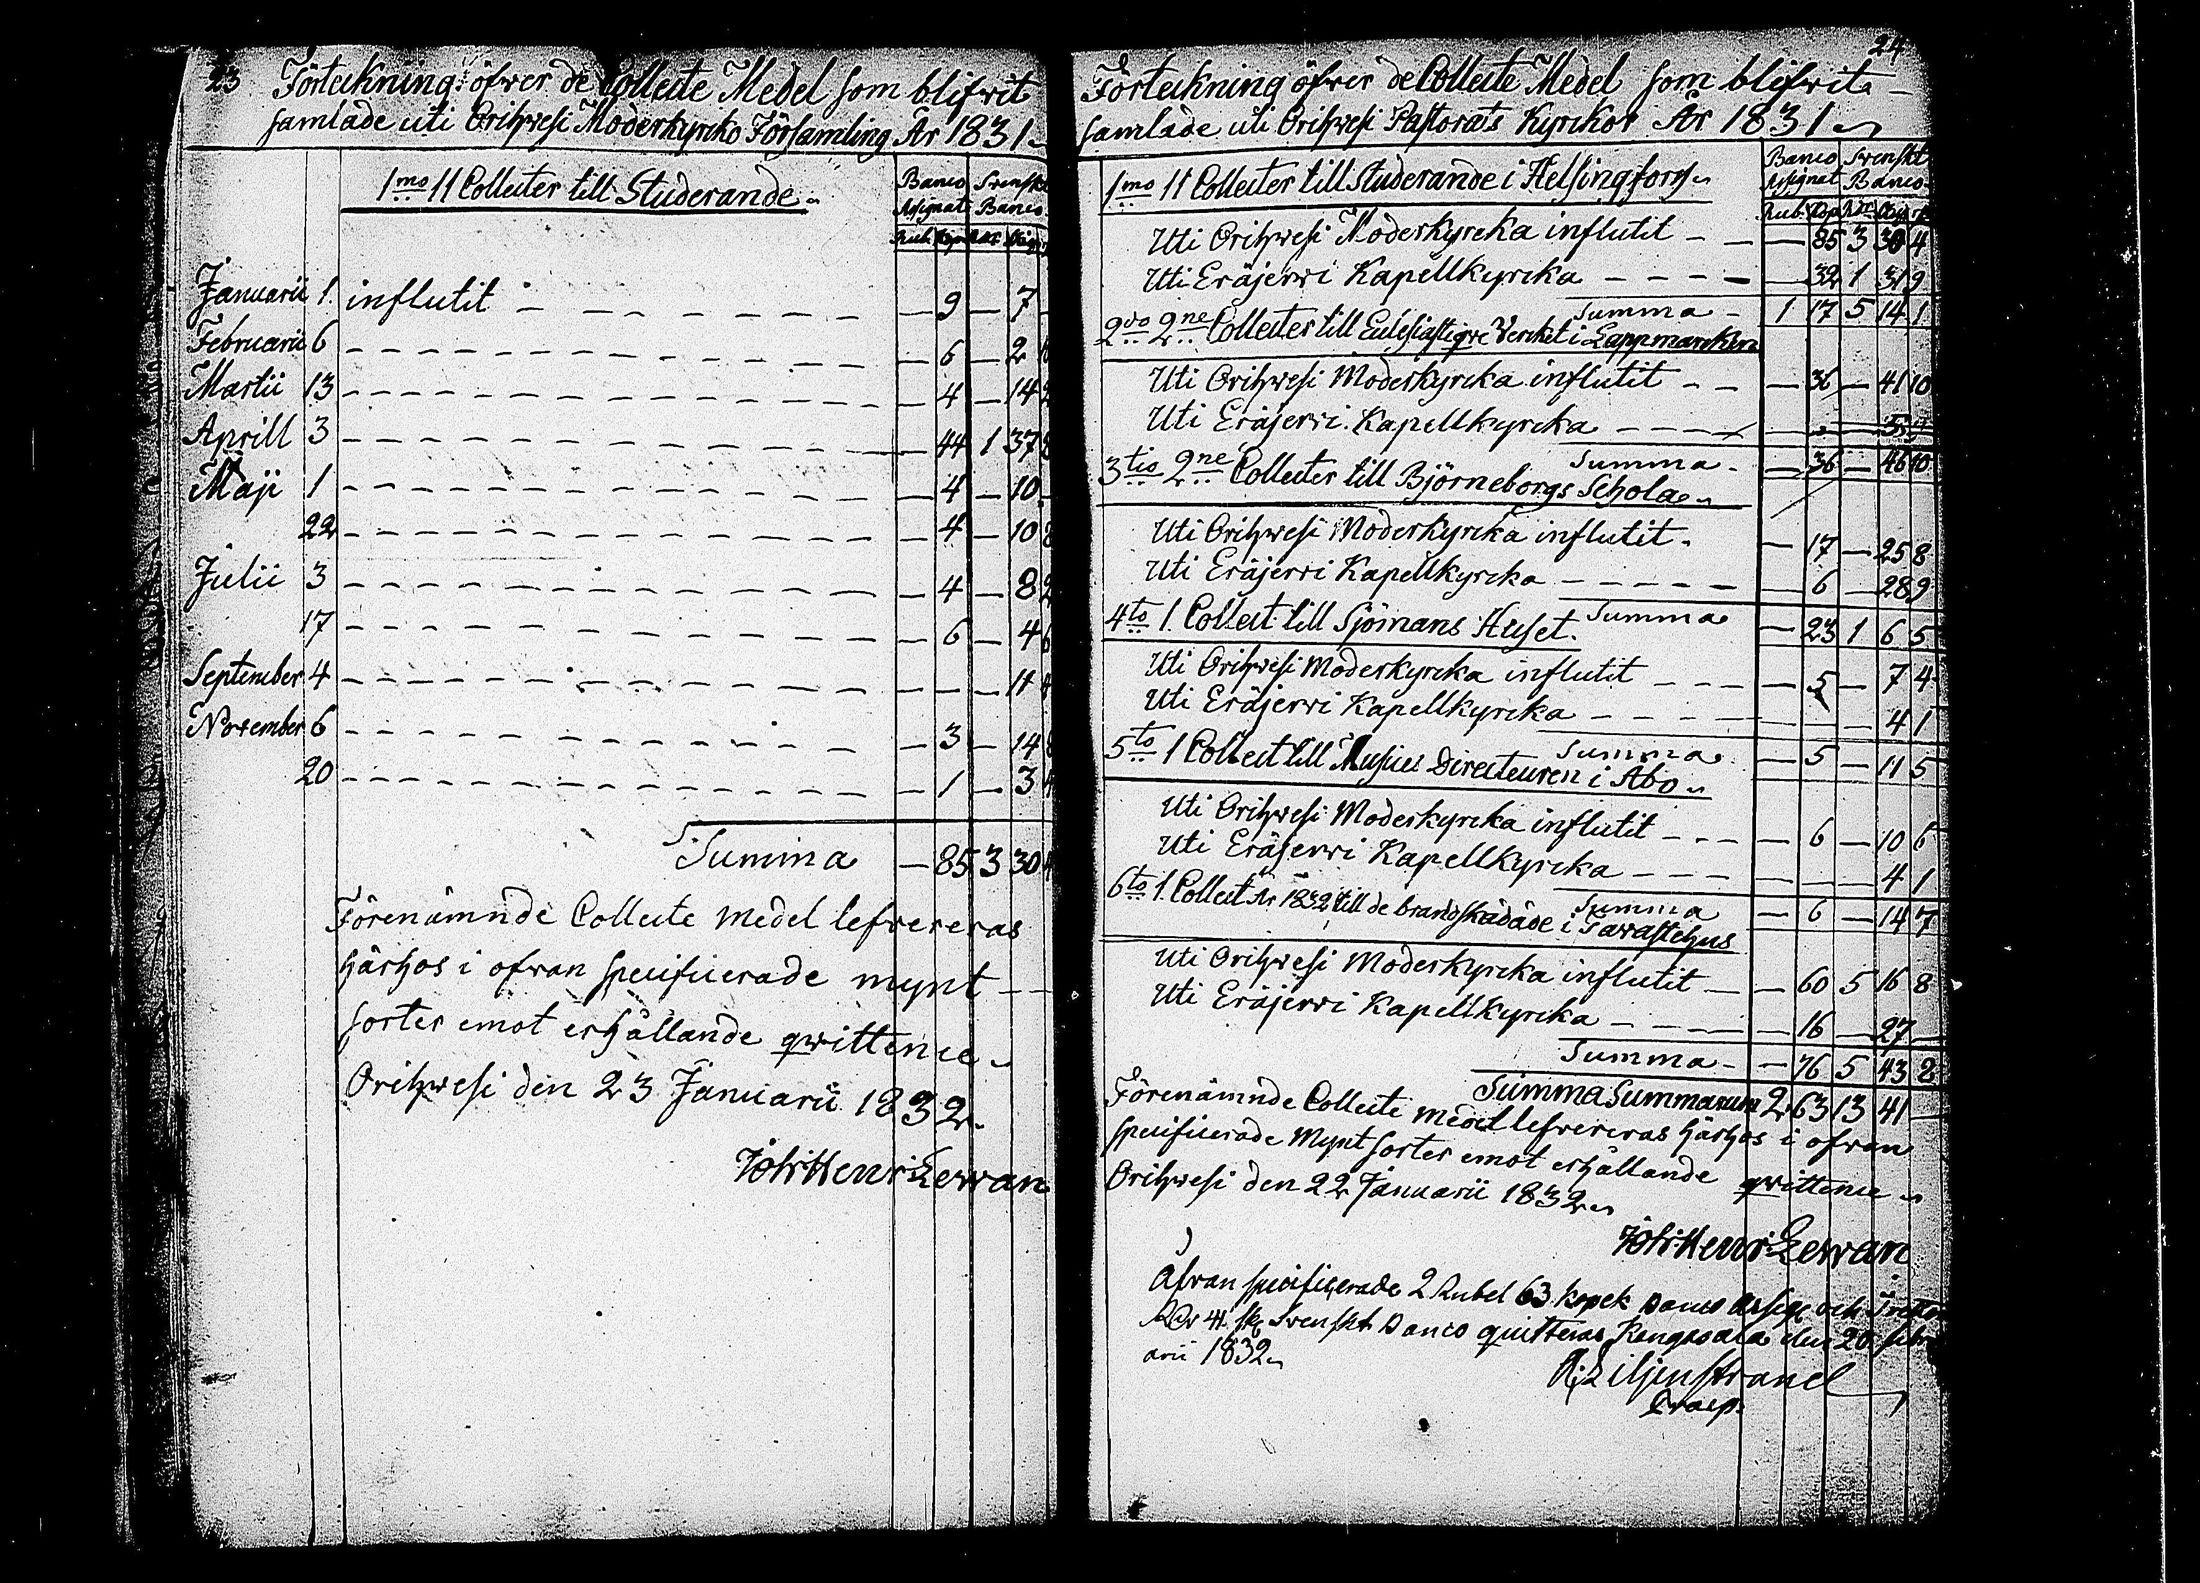 23
Förteckning öfver de Collecte Medel som blifvit
samlade uti Orihwesi Moderkyrcko Församling År 1831
1mo 11 Collecter till Studerande
Banco Svenskt
Assignat Banco
Rub. Kop. Rdr
Januarii 1. influtit — 9 — 7 —
Februarii 6 — 6 — 2
Martii 13 — 4 — 14 2
Aprill 3 — 44 1 37 8
Maji 1 — 4 — 10 —
22 — 4 — 10 8
Julii 3 — 4 — 8 2
17 — 6 — 4 6
September 4 — — — 11 4
November 6 — 3 — 14 8
20 — 1 — 3 4
Summa — 85 3 30 4
Förenämnde Collecte medel lefvereras
härhos i ofvan specificerade mynt
sorter emot erhållande qvittence
Orihwesi den 23 Januarii 1832.
Joh: Henr: Lewan
24
Förteckning öfver de Collecte Medel som blifvit
samlade uti Orihwesi Pastorats Kyrckor År 1831
1mo 11 Collecter till Studerande i Helsingfors
Banco Svenskt
Assignat Banco
Rub. Kop. Rdr
Uti Orihwesi Moderkyrcka influtit — 85 3 30 4
Uti Eräjervi Kapellkyrcka — 32 1 31 9
Summa 1 17 5 14 1
2do 2ne Collecter till Eclesiastiqve Vercket i Lappmarcken
Uti Orihwesi Moderkyrcka influtit — 36 — 41 10
Uti Eräjervi Kapellkyrcka — — — 5
Summa — 36 — 46 10
3tio 2ne Collecter till Björneborgs Schola
Uti Orihwesi Moderkyrcka influtit — 17 — 25 8
Uti Eräjervi Kapellkyrcka — 6 — 28 9
Summa — 23 1 6 5
4to 1 Collect till Sjömans Huset
Uti Orihwesi Moderkyrcka influtit — 5 — 7 4
Uti Eräjervi Kapellkyrcka — — — 4 1
Summa — 5 — 11 5
5to 1 Collect till Musices Directeuren i Åbo
Uti Orihwesi Moderkyrcka influtit — 6 — 10 6
Uti Eräjervi Kapellkyrcka — — — 4 1
Summa — 6 — 14 7
6to 1 Collect År 1832 till de brandskadade i Tavastehus
Uti Orihwesi Moderkyrcka influtit — 60 5 16 8
Uti Eräjervi Kapellkyrcka — 16 — 27 —
Summa — 76 5 43 2
Summa Summarum 2 63 13 41 —
Förenämnde Collecte medel lefvereras härhos i ofvan
specificerade Mynt sorter emot erhållande qvittence
Orihwesi den 22 Januarii 1832
Joh: Henr: Lewan
Ofvan specificerade 2 Rubel 63 kopek Banco Assign och
RDr 41 sk Svenskt Banco quitteras Kangasala den 20 Febru
arii 1832
Liljenstrand